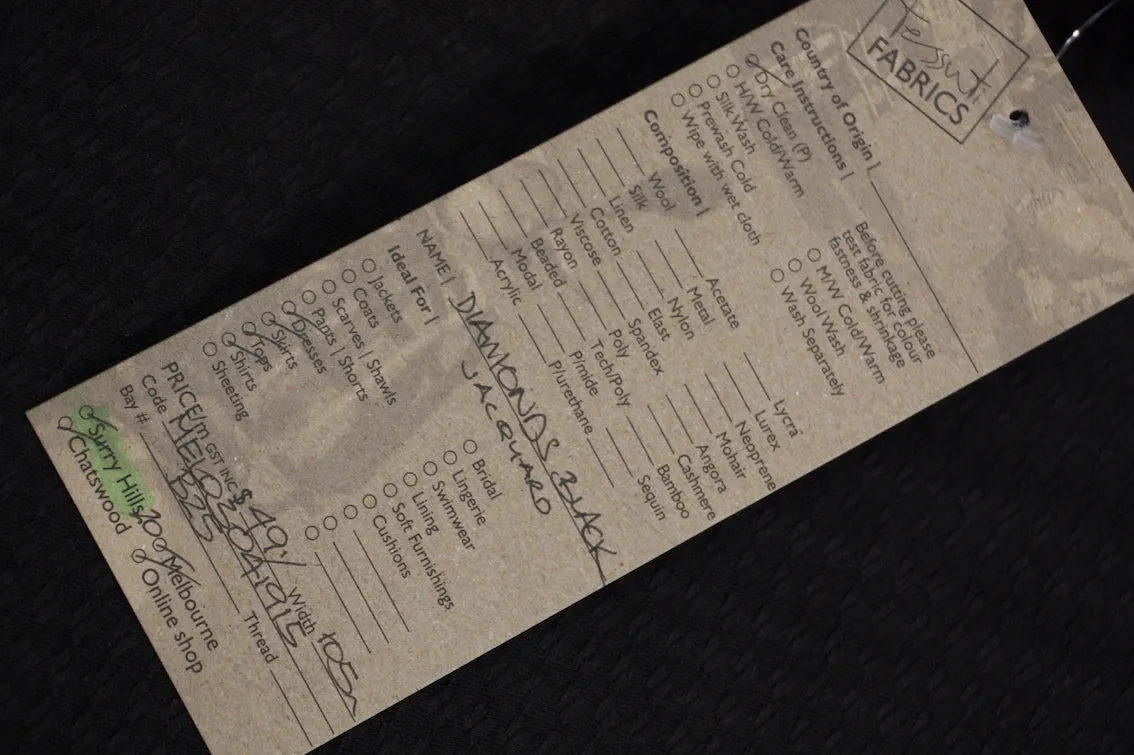 Tessuti
FABRICS
Country of Origin |
Care Instructions |
Dry Clean (P)
H/W Cold/Warm
Silk Wash
Prewash Cold
Wipe with wet cloth
Before cutting please
test fabric for colour
fastness & shrinkage
M/W Cold/Warm
Wool Wash
Wash Separately
Composition |
Wool Acetate Lycra
Silk Metal Lurex
Linen Nylon Neoprene
Cotton Elast Mohair
Viscose Spandex Angora
Rayon Poly Cashmere
Beaded Tech/Poly Bamboo
Modal P/mide Sequin
Acrylic P/urethane
NAME | DIAMONDS BLACK
JACQUARD
Ideal For |
Jackets Bridal
Coats Lingerie
Scarves | Shawls Swimwear
Pants | Shorts Lining
Dresses Soft Furnishings
Skirts Cushions
Tops
Shirts
Sheeting
PRICE/m GST INC $49 Width
Code
Bay # Thread
Surry Hills Melbourne
Chatswood Online shop